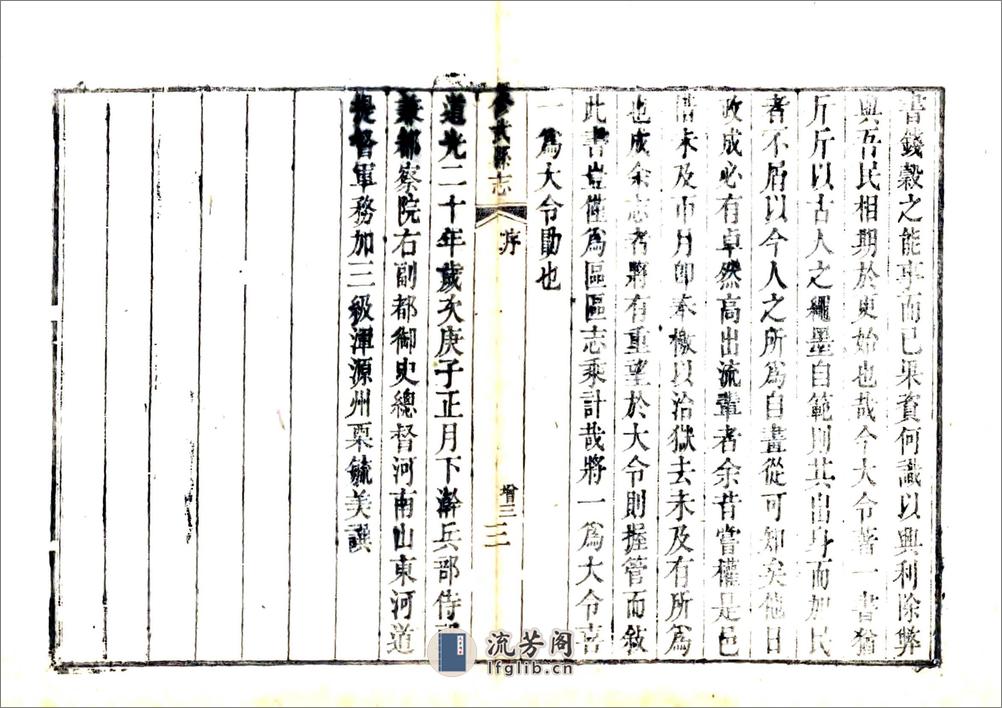 書錢穀之能事而已果資何識以興利除弊
與吾民相期於更始也哉今大令著一書猶
斤斤以古人之繩墨自範則其出身而加民
者不屑以今人之所為自畫從可知矣他日
政成必有卓然高出流輩者余昔嘗權是邑
惜未及市月即奉檄以治獄去未及有所為
也成余志者將有重望於大令則握管而敘
此書豈僅為區區志乘計哉將一為大令喜
一為大令勖也
修武縣志
序
增三
三
道光二十年歲次庚子正月下澣兵部侍
兼都察院右副都御史總督河南山東河道
提督軍務加三級渾源州栗毓美譔
流芳阁
lfglib.cn